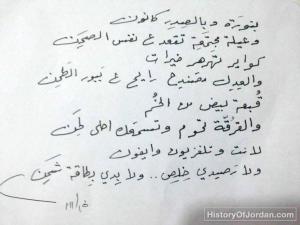 بنورة وبالصدر كانون
وعيلة مجتمعة تقعد ع نفس الصحن
كواير خيرات
والعدل رايح ع ببور الطحن
قبعة بيض من الخم
والقرقة تحوم وتسمعك احلى لحن
لا نت وتلفزيون وايفون
ولا رصيدي خلص .. ولا بدي بطاقة شحن
HistoryOfJordan.com